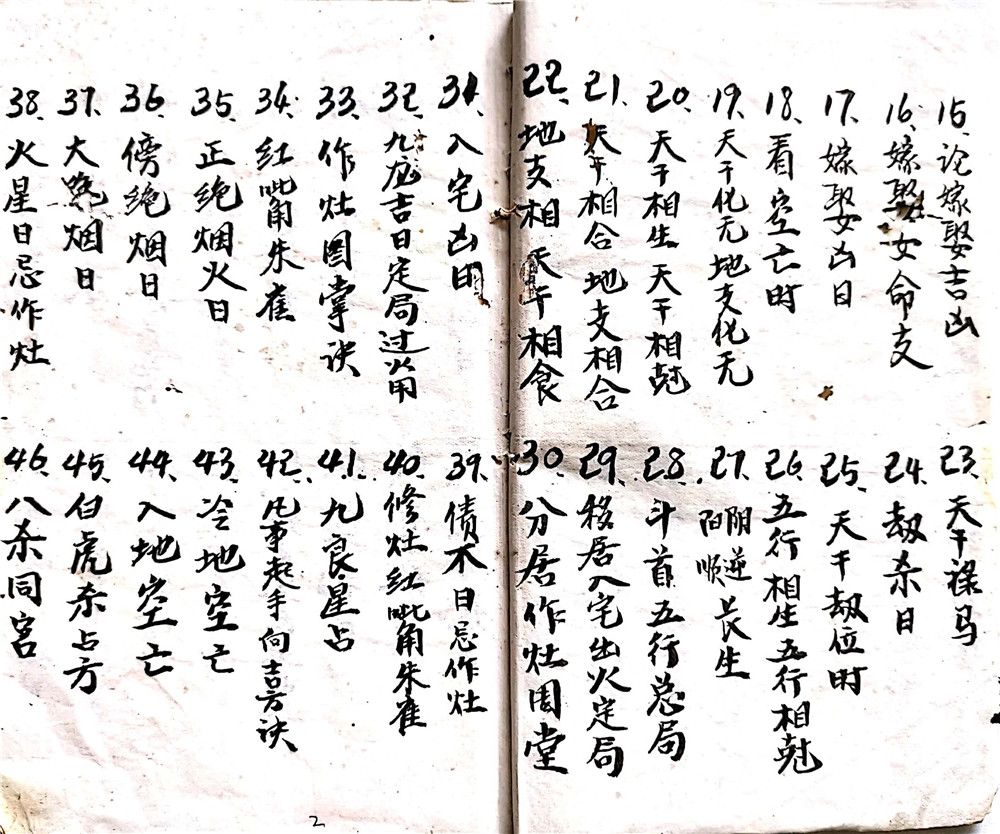 15、论嫁娶吉凶
16、嫁娶女命支
17、嫁娶凶日
18、看空亡时
19、天干化无地支化无
20、天干相生 天干相尅
21、天干相合 地支相合
22、地支相 天干相食
23、天干禄马
24、劫杀日
25、天干劫位时
26、五行相生五行相尅
27、阴逆阳顺长生
28、斗首五行总局
29、移居入宅出火定局
30、分居作灶周堂
31、入宅凶日
32、九龙吉日定局过
33、作灶图掌诀
34、红嘴朱雀
35、正绝烟火日
36、傍绝烟日
37、大绝烟日
38、火星日忌作灶
39、债不日忌作灶
40、修灶红嘴朱雀
41、九良星占
42、凡事起手向喜方诀
43、冷地空亡
44、入地空亡
45、白虎杀占方
46、八杀同宫
2